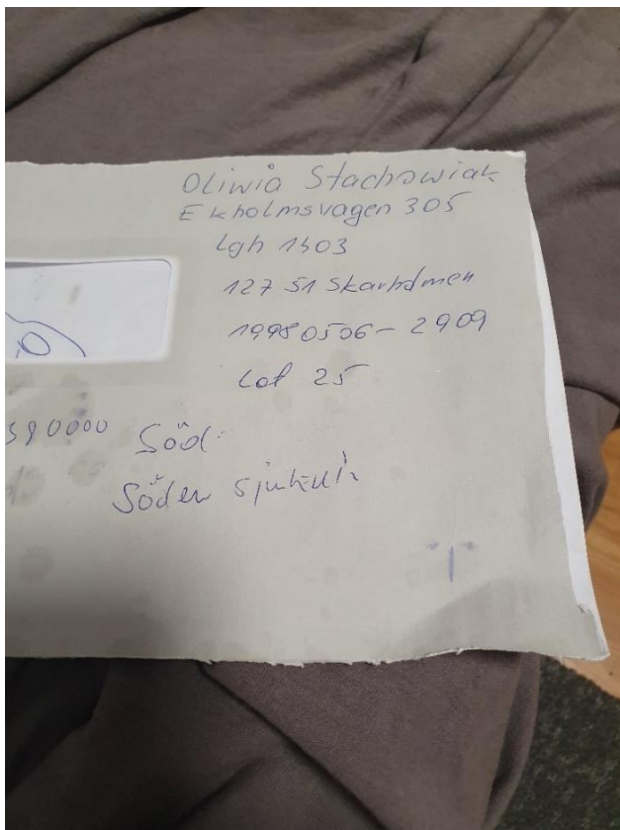 Oliwia Stachowiak
Ekholmsvagen 305
Lgh 1303
127 51 Skarholmen
19980506-2909
Lot 25
390000 Söd
Söder